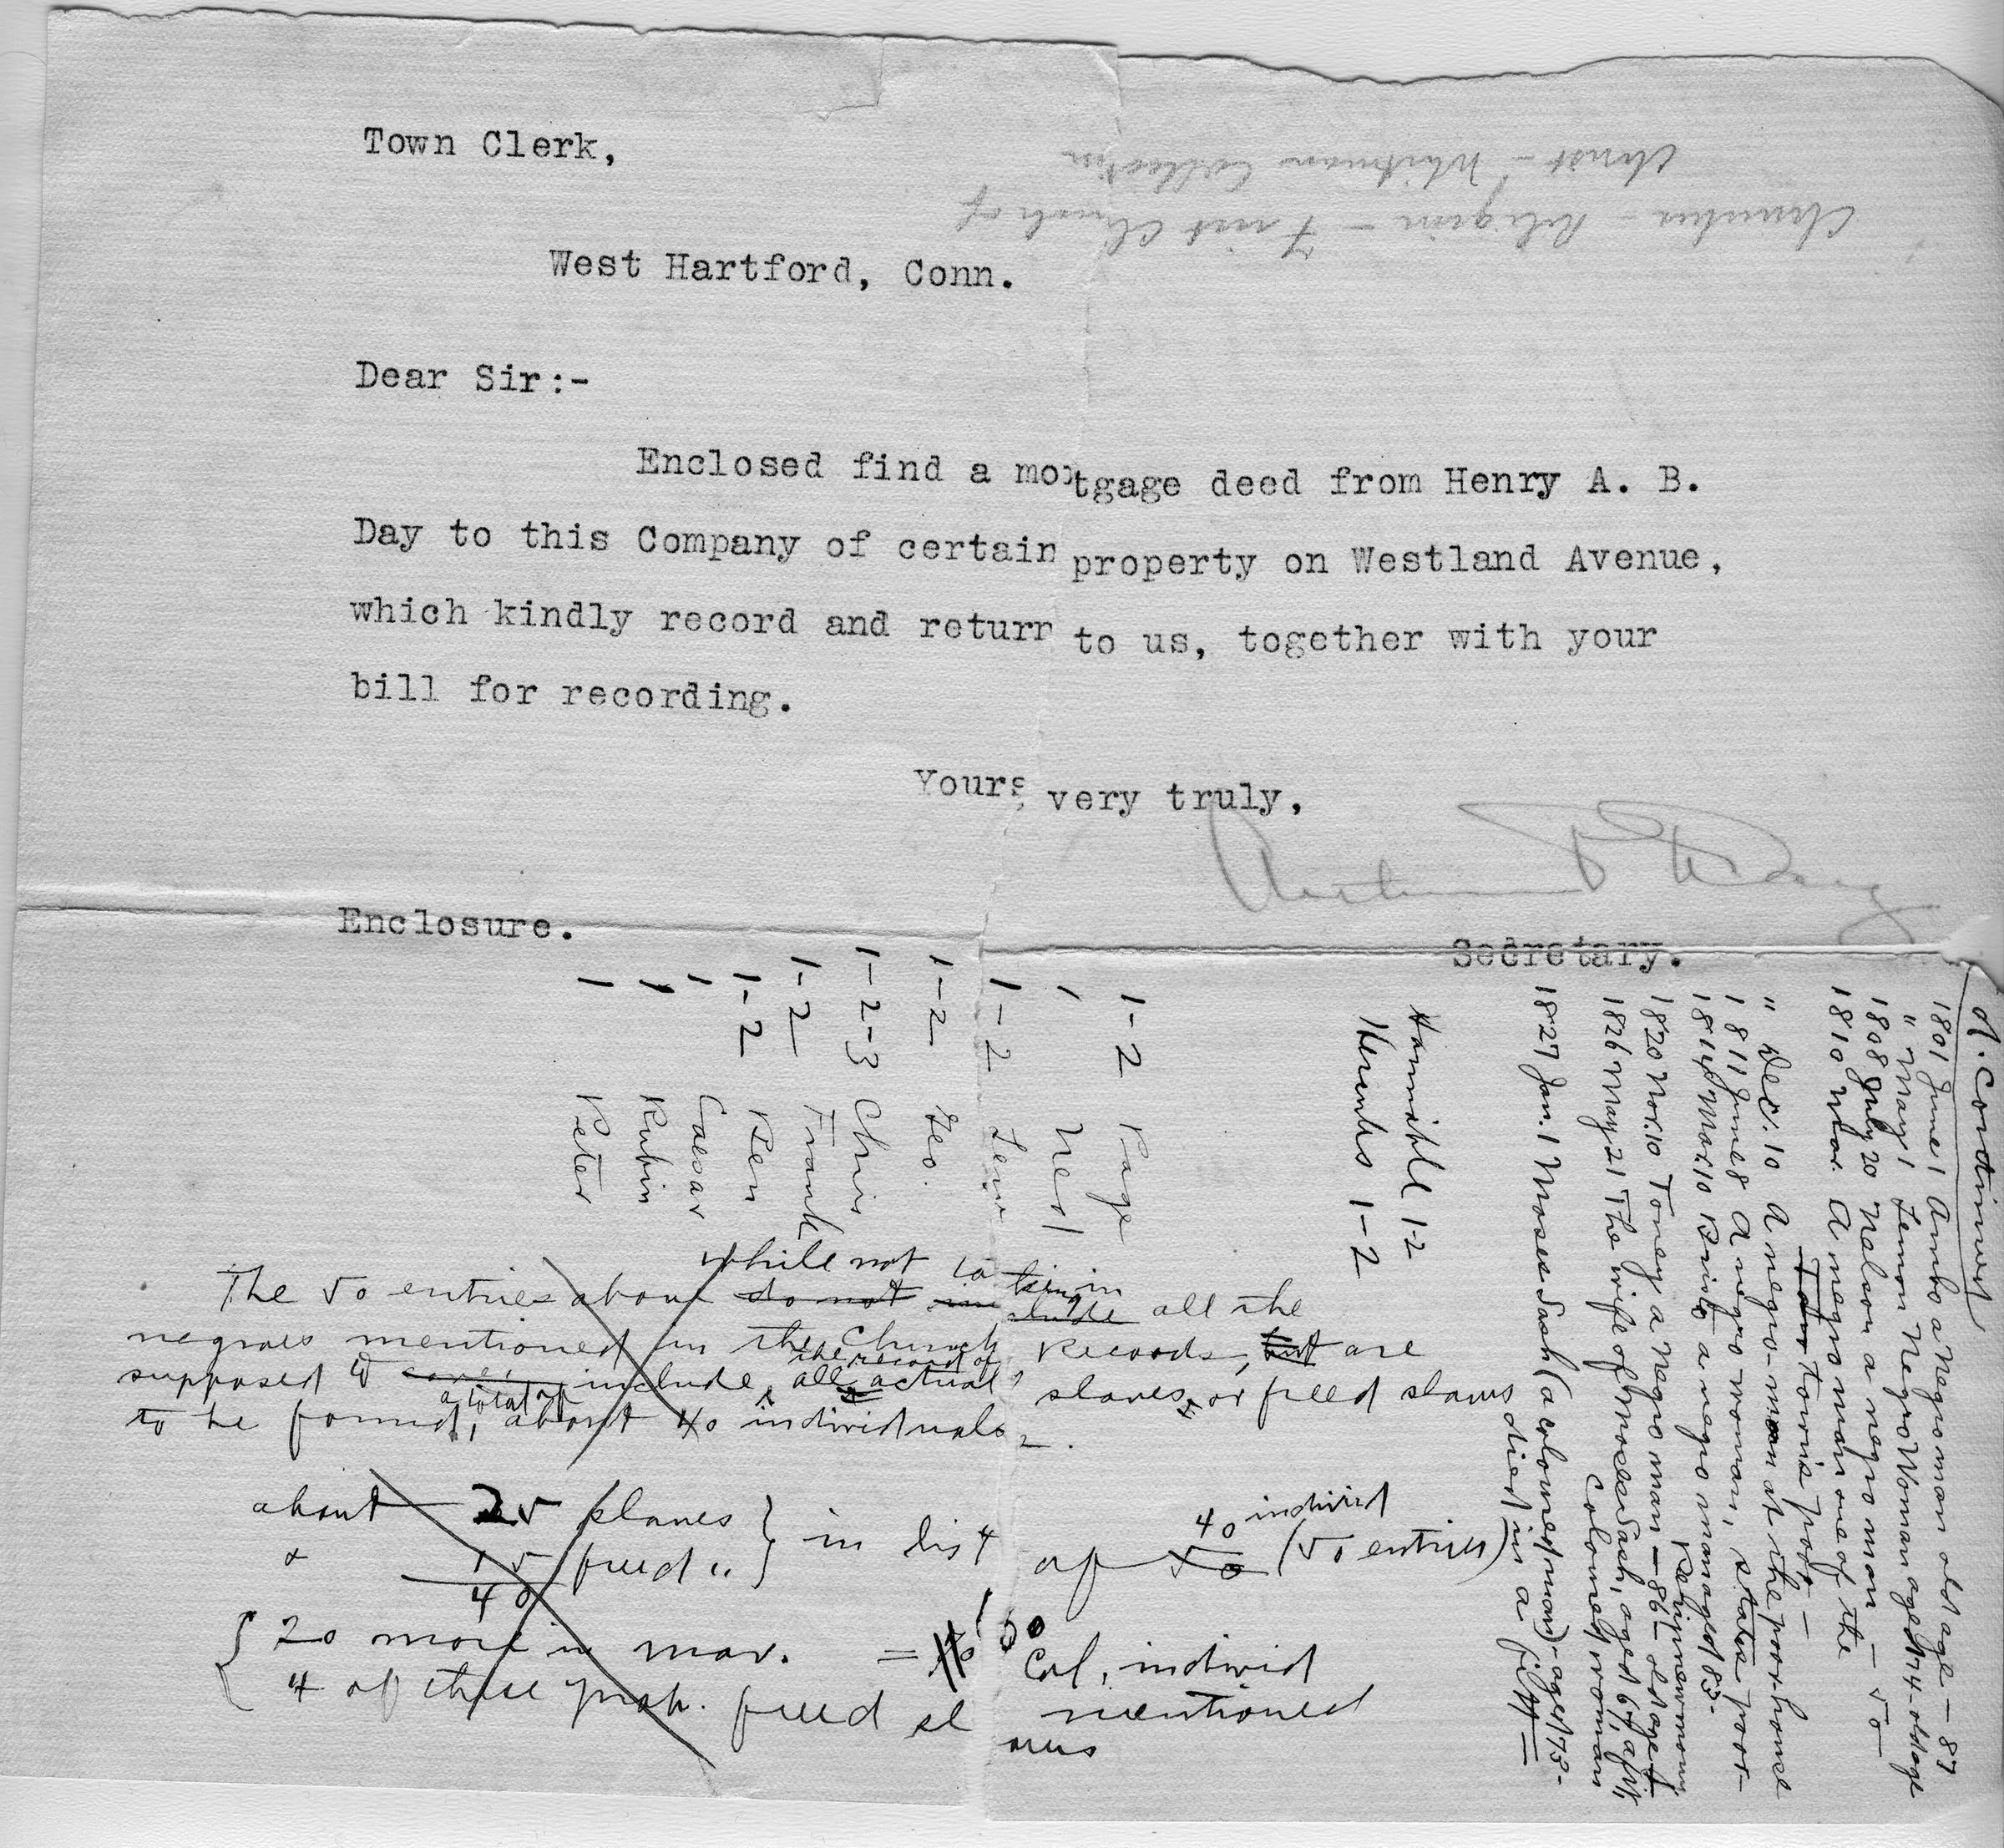 Town Clerk,
West Hartford, Conn.
Dear Sir:-
Enclosed find a mortgage deed from Henry A. B.
Day to this Company of certain property on Westland Avenue,
which kindly record and return to us, together with your
bill for recording.
Yours very truly,
Secretary.
Enclosure.
Churches - Religion - First Church of
Christ - Whitman Collection
D. continued
1801 June 1 Ambo a Negro man old age - 87
" May 1 Lemon Negro Woman aged 74 - old age
1808 July 20 Nelson a negro man - 50
1810 Mar. A negro man one of the
Town Towns poor -
" Dec. 10 A negro-man at the poor house
1811 June 8 A negro woman, states poor -
1814 Mar. 10 Bristo a negro man aged 83 -
1820 Nov. 10 Toney a Negro man - 86 - old age &
Peripneumony
1826 May 21 The wife of Moses Sash, aged 67, a fit,
Coloured woman
1827 Jan. 1 Moses Sash (a coloured man) - aged 73 -
died in a fit =
Hannibl 1-2
1-2 Page
1 Ned
1-2 Lem
1-2 Geo.
1-2-3 Chris
1-2 Frank
1-2 Ben
1 Caesar
1 Rubin
1 Peter
while not containing in
The 50 entries above do not include all the
negroes mentioned in the Church Records, but are
the record of
supposed to cover include, all actual slaves, or freed slaves
a total of
to be found, about 40 individuals.
about 25 slaves } in list of 40 individ (50 entries)
& 15 freed " }
40
{ 20 more in mar. = 60 Col. individ mentioned
4 of these prob. freed slaves